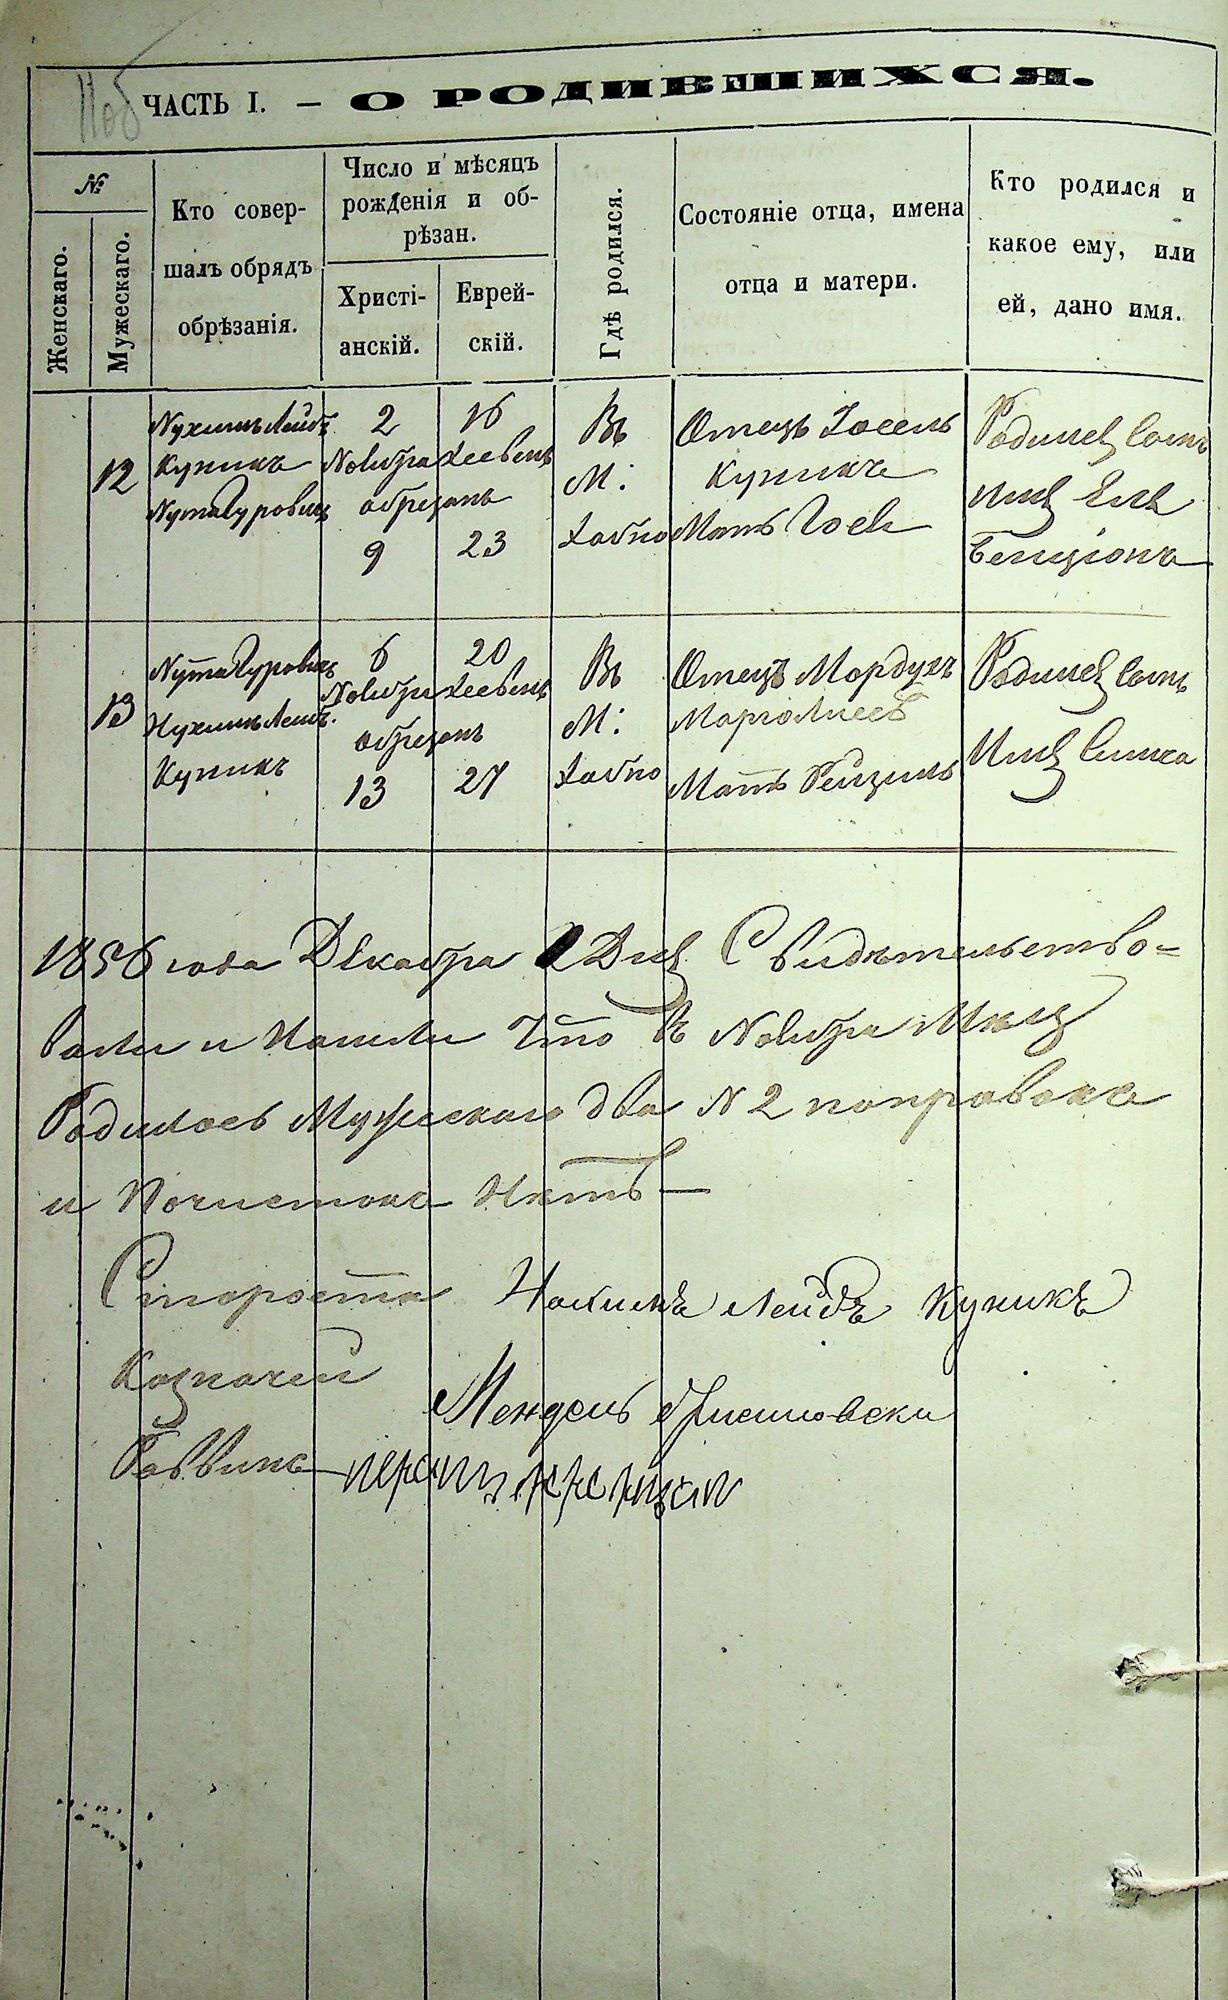 11об
ЧАСТЬ I. — О РОДИВШИХСЯ.
№
Женскаго.
Мужескаго.
Кто совер-
шалъ обрядъ
обрѣзанія.
Число и мѣсяцъ
рожденія и об-
рѣзан.
Христі-
анскій.
Еврей-
скій.
Гдѣ родился.
Состояніе отца, имена
отца и матери.
Кто родился и
какое ему, или
ей, дано имя.
12
Нухимъ Лейбъ
Куникъ
Нута Гуровичъ
2
Ноября
обрезанъ
9
16
Хесвенъ
23
Въ
М:
Хабно
Отецъ Иосель
Куникъ
Мать
Родился Сынъ
Имя Еля
Бенціонъ
13
Нута Гуровичъ
Нухимъ Лейбъ
Куникъ
6
Ноября
обрезанъ
13
20
Хесвенъ
27
Въ
М:
Хабно
Отецъ Мордухъ
Марголисъ
Мать Рейзиль
Родился Сынъ
Имя Симха
1856 года Декабря 2 Дня Свидѣтельство=
вали и Нашли Что въ Ноября Мѣсяц
Родилось Мужескаго два N 2 поправокъ
и Почистокъ Нѣтъ —
Староста Нахимъ Лейбъ Куникъ
Казначей
Мендель
Раввинъ